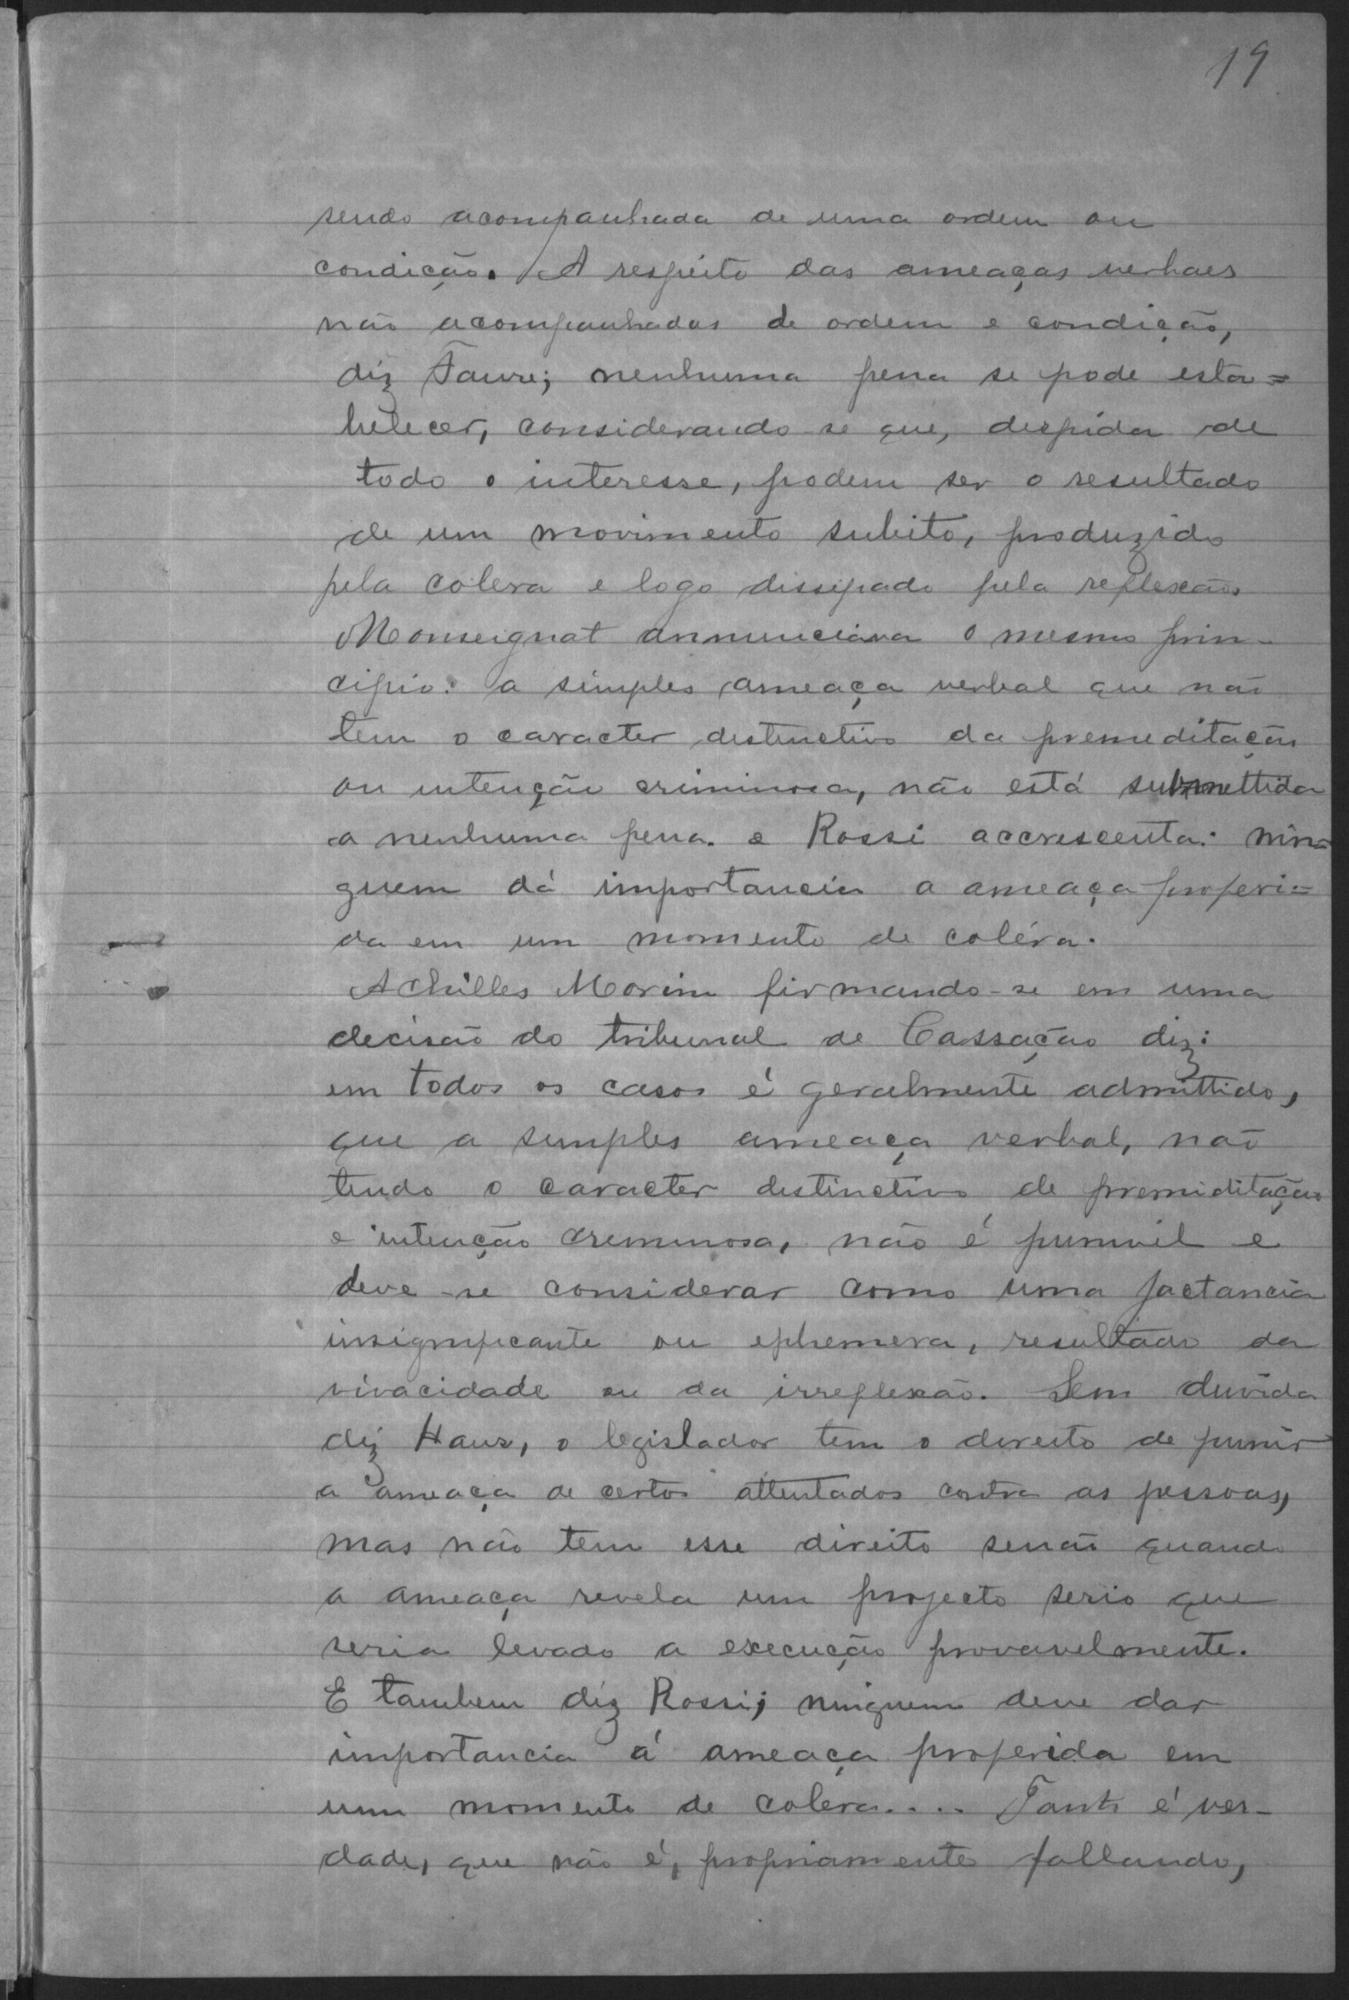 19
sendo acompanhada de uma ordem ou
condicção. A respeito das ameaças verbaes
não acompanhadas de ordem e condicção,
diz Faure; nenhuma pena se pode esta=
belecer, considerando-se que, despida de
todo o interesse, podem ser o resultado
de um movimento subito, produzido
pela colera e logo dissipado pela reflexão.
Monseignat annunciava o mesmo prin-
cipio: a simples ameaça verbal que não
tem o caracter distinctivo da premeditação
ou intenção criminosa, não está submettida
a nenhuma pena. e Rossi accrescenta: nin=
guem dá importancia a ameaça proferi=
da em um momento de coléra.
Achilles Morim firmando-se em uma
decisão do tribunal de Cassação diz:
em todos os casos é geralmente admittido,
que a simples ameaça verbal, não
tendo o caracter distinctivo de premiditação
e intenção creminosa, não é punivel e
deve-se considerar como uma jactancia
insignificante ou ephemera, resultado da
vivacidade ou da irreflexão. Sem duvida
diz Haus, o legislador tem o direito de punir
a ameaça de certos attentados contra as pessoas,
mas não tem esse direito senão quando
a ameaça revela um projecto serio que
seria levado a execução provavelmente.
E tambem diz Rossi; ninguem deve dar
importancia á ameaça proferida em
um momento de colera.... Tanto é ver-
dade, que não é, propriamente fallando,